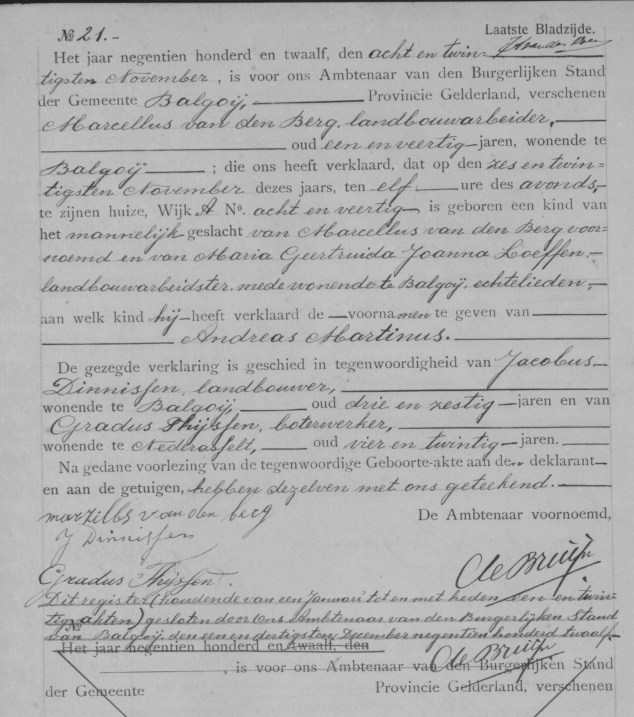 № 21.-
Laatste Bladzijde.
Het jaar negentien honderd en twaalf, den acht en twin-
tigsten November, is voor ons Ambtenaar van den Burgerlijken Stand
der Gemeente Balgoij, Provincie Gelderland, verschenen
Marcellus van den Berg, landbouwarbeider,
oud een en veertig jaren, wonende te
Balgoij ; die ons heeft verklaard, dat op den zes en twin-
tigsten November dezes jaars, ten elf ure des avonds,
te zijnen huize, Wijk A No. acht en veertig is geboren een kind van
het mannelijk geslacht van Marcellus van den Berg voor-
noemd en van Maria Geertruida Joanna Loeffen,
landbouwarbeidster, mede wonende te Balgoij, echtelieden,
aan welk kind hij heeft verklaard de voornamen te geven van
Andreas Martinus.
De gezegde verklaring is geschied in tegenwoordigheid van Jacobus
Dinnissen, landbouwer,
wonende te Balgoij, oud drie en zestig jaren en van
Gradus Thijssen, boterwerker,
wonende te Nederasselt, oud vier en twintig jaren.
Na gedane voorlezing van de tegenwoordige Geboorte-akte aan de deklarant
en aan de getuigen, hebben dezelven met ons geteekend.
marzillbs van den berg
De Ambtenaar voornoemd,
J Dinnissen
Gradus Thijssen.
de Bruijn
Dit register (houdende van een Januari tot en met heden een en twin-
tig akten) gesloten door Ons Ambtenaar van den Burgerlijken Stand
van Balgoij den een en dertigsten December negentien honderd twaalf.
No
Het jaar negentien honderd en twaalf, den
de Bruijn
, is voor ons Ambtenaar van den Burgerlijken Stand
der Gemeente Provincie Gelderland, verschenen